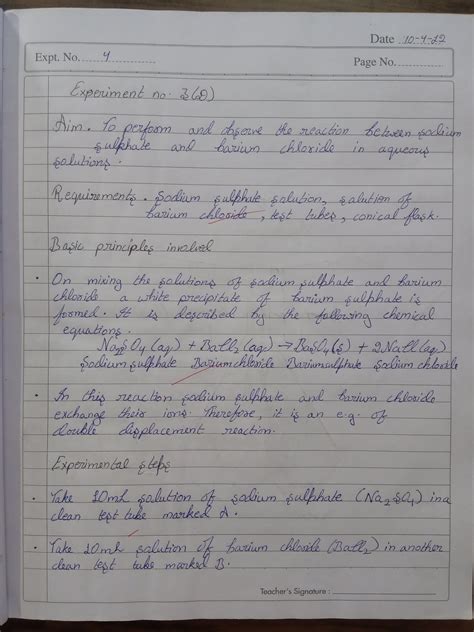 Date 10-4-22
Expt. No. 4
Page No.
Experiment no. 3(D)
Aim. To perform and observe the reaction between sodium
sulphate and barium chloride in aqueous
solutions.
Requirements. Sodium sulphate solution, solution of
barium chloride, test tubes, conical flask.
Basic principles involved
• On mixing the solutions of sodium sulphate and barium
chloride a white precipitate of barium sulphate is
formed. It is described by the following chemical
equations.
Na2SO4(aq) + BaCl2(aq) → BaSO4(s) + 2NaCl(aq)
Sodium sulphate Barium chloride Barium sulphate Sodium chloride
• In this reaction sodium sulphate and barium chloride
exchange their ions. Therefore, it is an e.g. of
double displacement reaction.
Experimental steps
• Take 10mL solution of sodium sulphate (Na2SO4) in a
clean test tube marked A.
• Take 10mL solution of barium chloride (BaCl2) in another
clean test tube marked B.
Teacher's Signature :